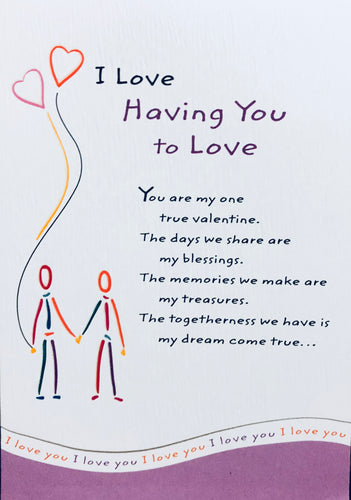 I Love
Having You
to Love
You are my one
true valentine.
The days we share are
my blessings.
The memories we make are
my treasures.
The togetherness we have is
my dream come true...
I love you I love you I love you I love you I love you